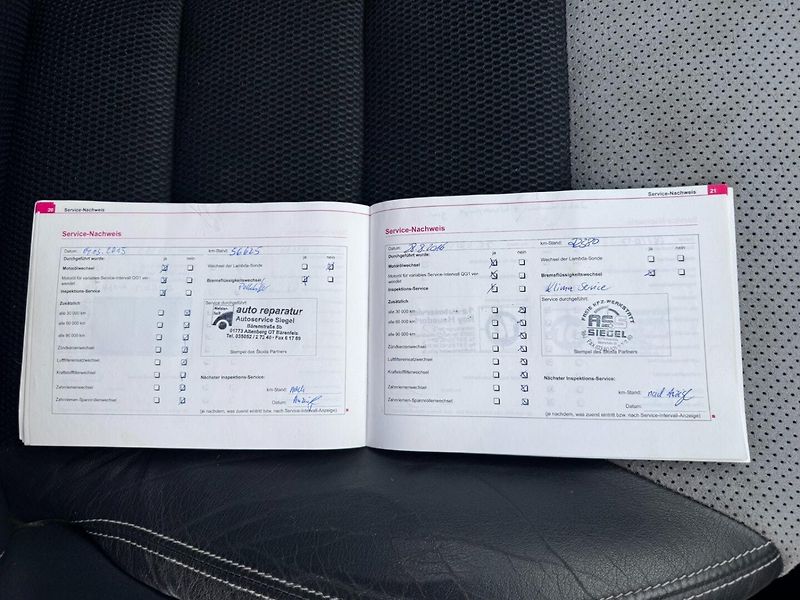 20 Service-Nachweis
Service-Nachweis
Datum:
km-Stand: 56665
Durchgeführt wurde: ja nein
ja nein
Motorölwechsel
Wechsel der Lambda-Sonde
Motoröl für variables Service-Intervall QG1 ver-
wendet
Bremsflüssigkeitswechsel
Inspektions-Service
Zusätzlich
Service durchgeführt:
alle 30 000 km
alle 60 000 km
alle 90 000 km
Zündkerzenwechsel
Luftfiltereinsatzwechsel
Kraftstofffilterwechsel
Zahnriemenwechsel
Zahnriemen-Spannrollenwechsel
auto reparatur
Autoservice Siegel
Bärensteinstraße 5b
01773 Altenberg OT Bärenfels
Stempel des Škoda Partners
Nächster Inspektions-Service:
km-Stand: nach
Datum: Anzeige
(je nachdem, was zuerst eintritt bzw. nach Service-Intervall-Anzeige)
Service-Nachweis 21
Service-Nachweis
Datum: 28.8.2016
km-Stand:
Durchgeführt wurde: ja nein
ja nein
Motorölwechsel
Wechsel der Lambda-Sonde
Motoröl für variables Service-Intervall QG1 ver-
wendet
Bremsflüssigkeitswechsel
Inspektions-Service
Klima Service
Zusätzlich
Service durchgeführt:
alle 30 000 km
alle 60 000 km
alle 90 000 km
Zündkerzenwechsel
Luftfiltereinsatzwechsel
Kraftstofffilterwechsel
Zahnriemenwechsel
Zahnriemen-Spannrollenwechsel
FREIE KFZ-WERKSTATT
AS
SIEGEL
Stempel des Škoda Partners
Nächster Inspektions-Service:
km-Stand: nach Anzeige
Datum:
(je nachdem, was zuerst eintritt bzw. nach Service-Intervall-Anzeige)